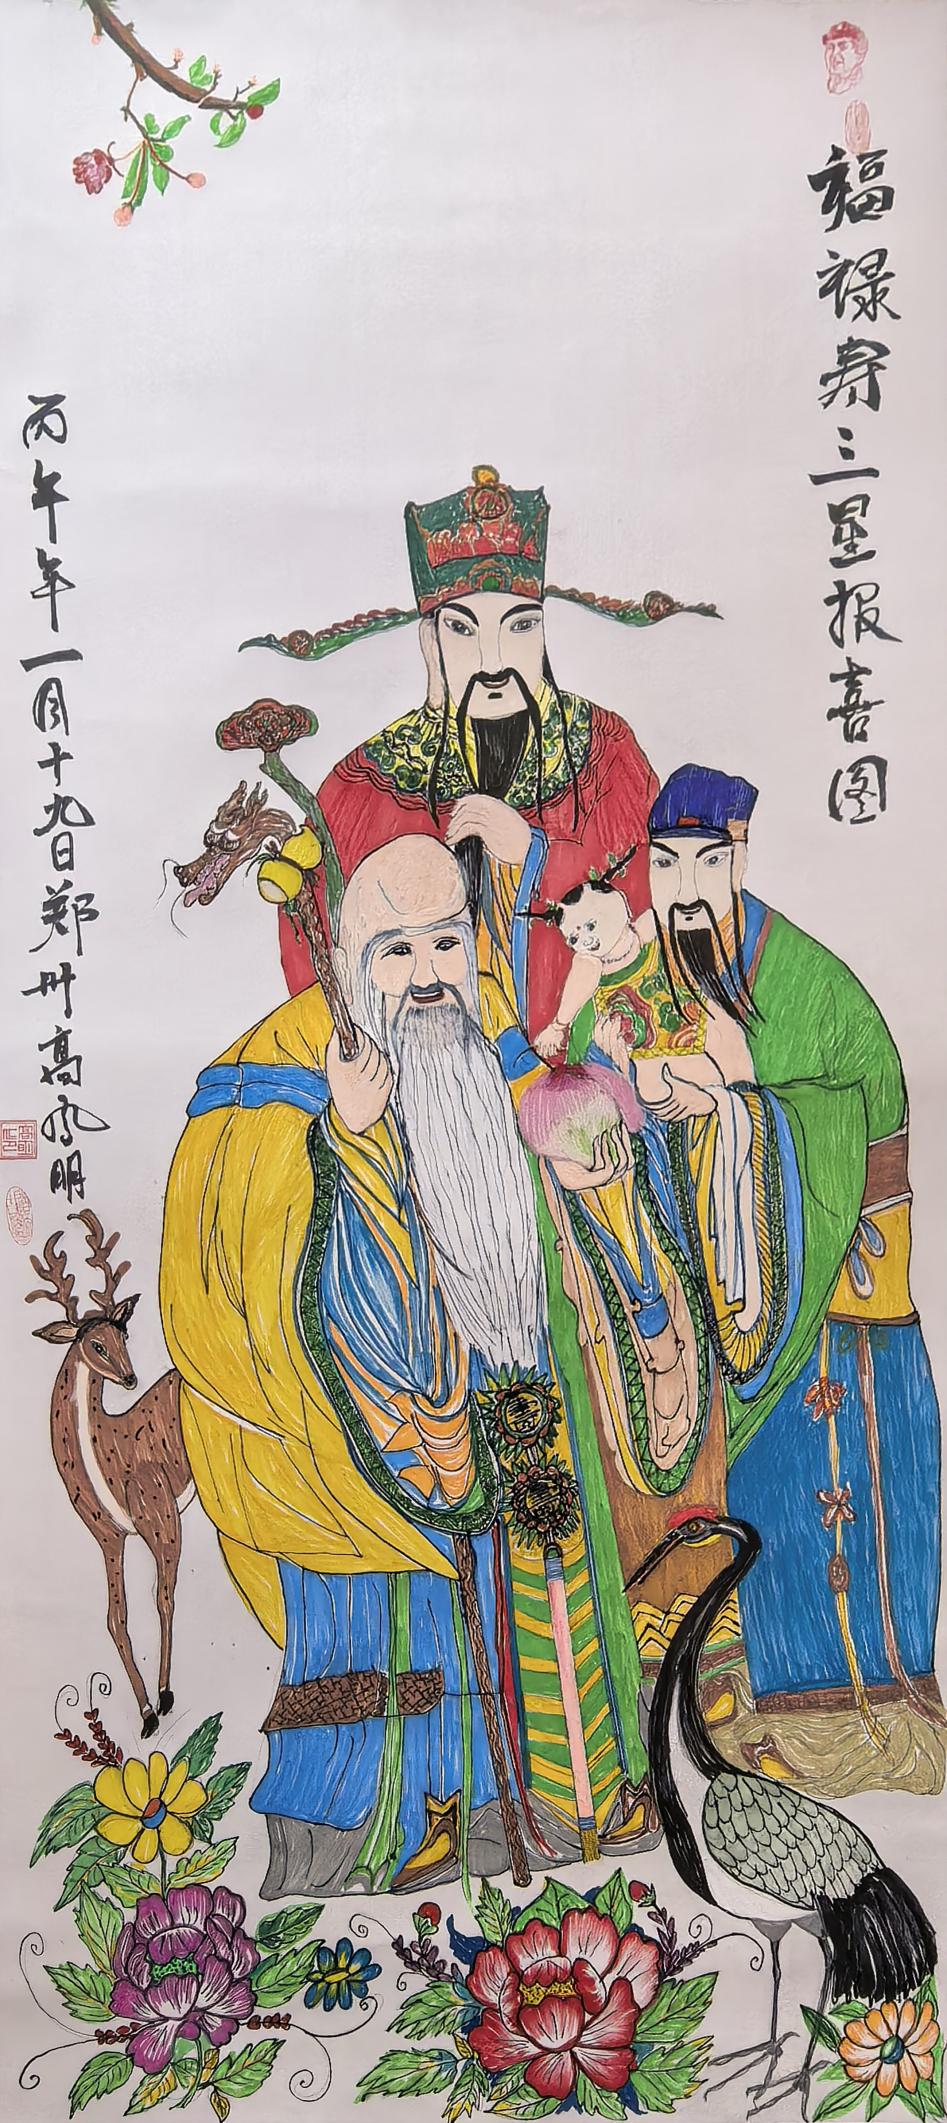 福禄寿三星报喜图
丙午年一月十九日郑州高凤明